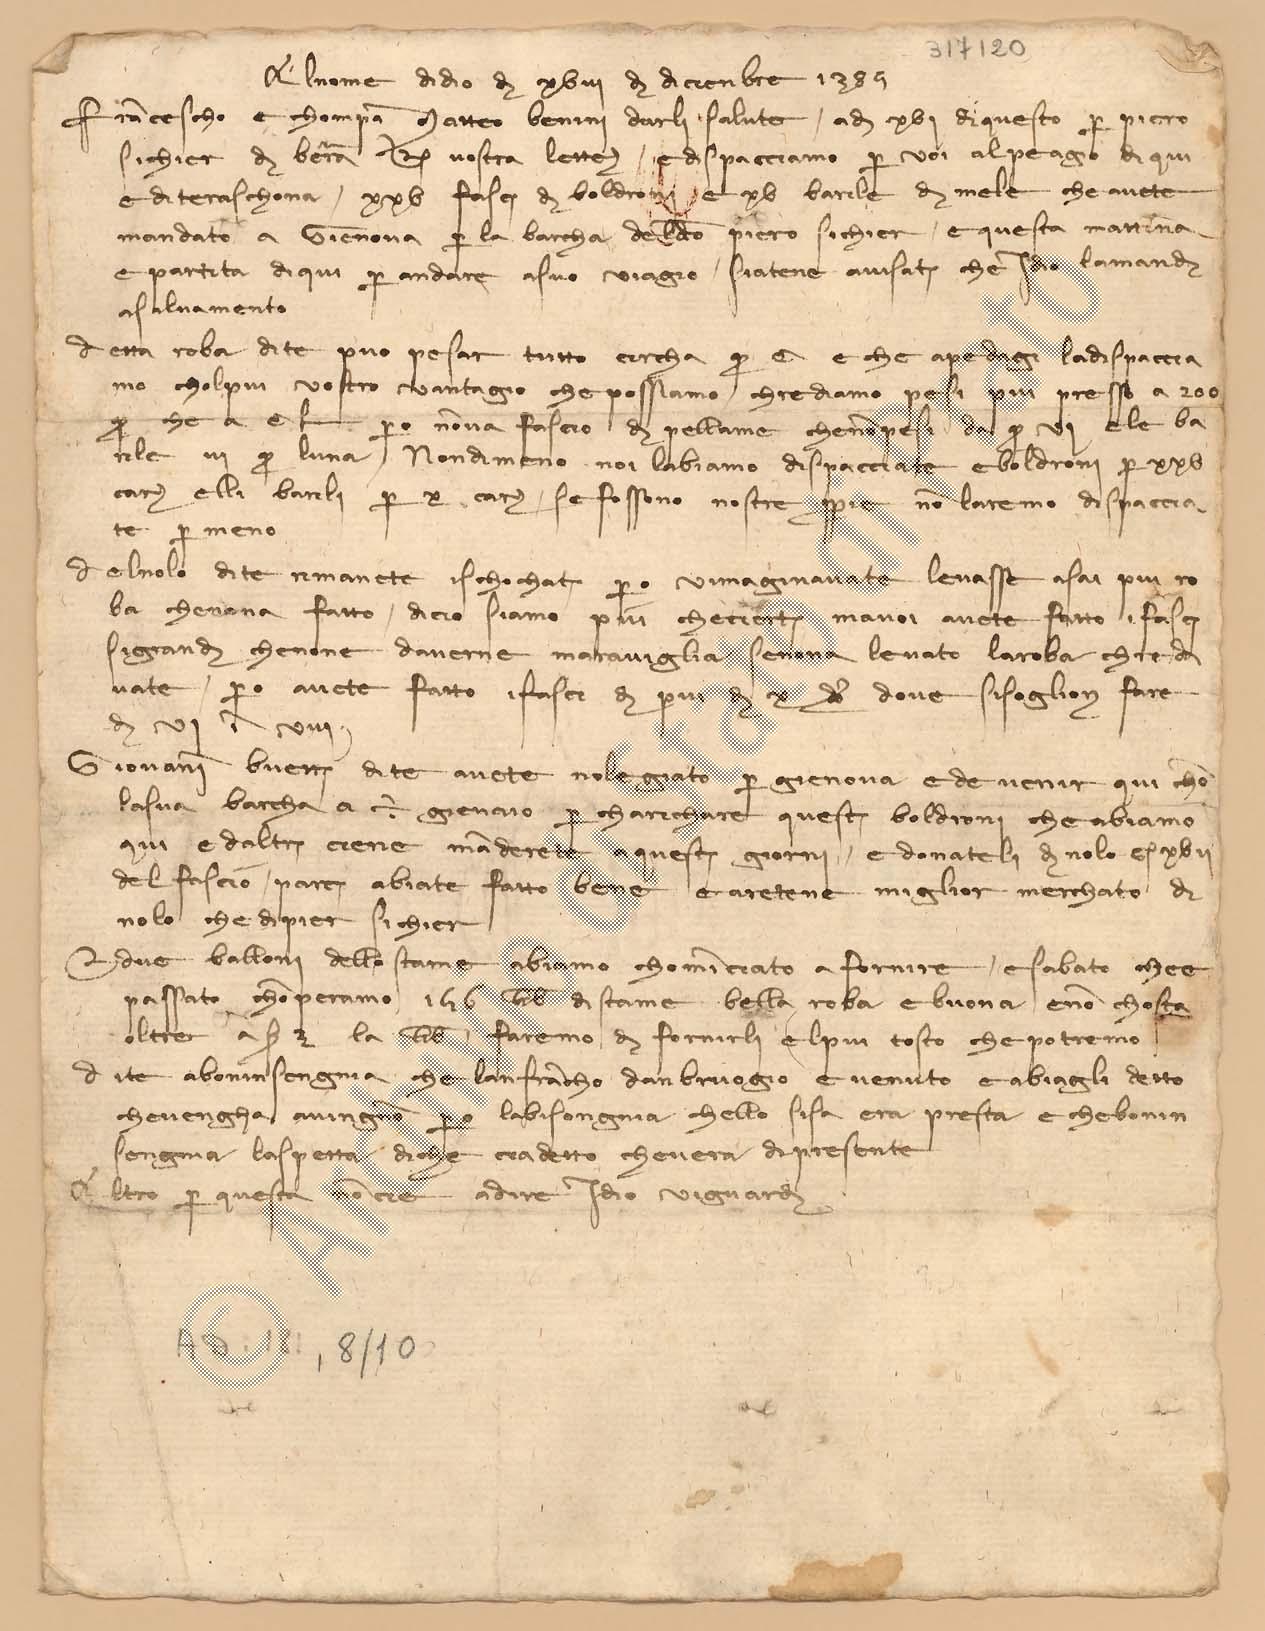 317120
Al nome di dio di xviii di dicenbre 1385
francescho e chompa Matteo benini darli salute / a di xvi di questo per piero
sichier di ... vostra lettera / e dispacciamo per voi al peagio di qui
e di teraschona / xxv fasci di boldroni e xv barile di mele che avete
mandato a Gienova per la barcha del detto piero sichier / e questa mattina
e partita di qui per andare a suo viagio / siatene avisati che Idio la mandi
a salvamento
detta roba dite puo pesar tutto circha ... e che a pedagi la dispaccia
mo chol piu vostro vantagio che possiamo / chrediamo pesi piu presso a 200
... che a ... pero non va fascio di pellame che non pesi da ... vi e le ba
rile iii ... l una / Nondimeno noi l abiamo dispacciate e boldroni per xxv
cariche e lli barili per x cariche / se fossono nostre proprie non l aremo dispaccia
te per meno
del nolo dite rimanete ischochati pero v imaginavate levasse asai piu ro
ba che non a fatto / di cio siamo piu che cierti ma voi avete fatto i fasci
si grandi che non e d averne maraviglia se non a levato la roba chreda
vate / pero avete fatto i fasci di piu di x ... dove si sogliono fare
di vi in viii
Giovanni ... dite avete nolegiato per gienova e de venir qui chon
la sua barcha a ... gienaio per charichare questi boldroni che abiamo
qui ed altri ciene manderete a questi giorni / e donateli di nolo s. xvii
del fascio / parci abiate fatto bene e aretene miglior merchato di
nolo che di pier sichier
E due balloni dello stame abiamo chominciato a fornire / e sabato ch e e
passato chonperamo 146 lib di stame bella roba e buona e non chosta
oltre a s ... la lib / faremo di fornirli el piu tosto che potremo
dite a boninsengnia che lanfrancho d anbruogio e venuto e abiagli detto
che vengha a vingnone pero la bisongnia che llo si sa era presta e che bonin
sengnia l aspetta / dicie era detto che vera di presente
Altro per questa non cie a dire Idio vi guardi
, 8/10
© Archivio di Stato di Prato